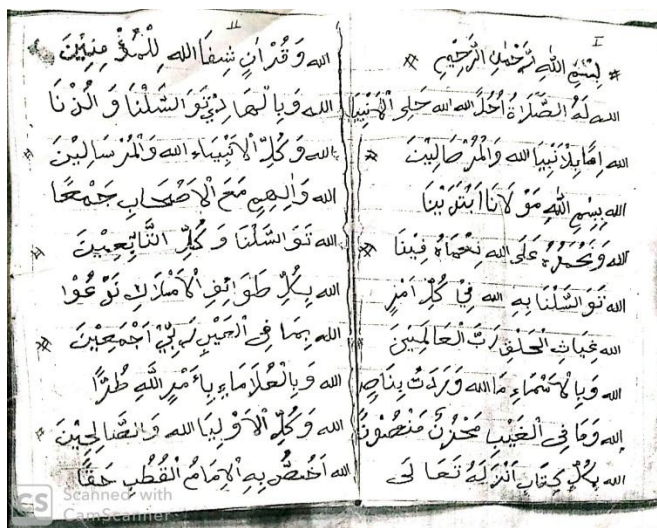 I
* بِسْمِ اللهِ الرَّحْمٰنِ الرَّحِيْمِ *
الله لَهُ الصَّلَاةُ الله الله
الله بِسْمِ اللهِ مَوْلَانَا ابْتَدَيْنَا
الله وَنَحْمَدُهُ عَلَى الله نِعْمَاهُ فِيْنَا *
الله تَوَسَّلْنَا بِهِ الله فِيْ كُلِّ اَمْرٍ
الله غِيَاثِ الْخَلْقِ رَبِّ الْعَالَمِيْنَ
الله وَبِالْاَسْمَاءِ مَا الله وَرَدَتْ بِنَاصٍ
الله وَمَا فِى الْغَيْبِ مَخْزُنً
الله بِكُلِّ كِتَابٍ اَنْزَلَهُ تَعَالَى
II
الله وَقُرْاٰنٍ شِفَا الله لِلْمُؤْمِنِيْنَ
الله وَبِالْهَادِيْ تَوَسَّلْنَا وَلُذْنَا
الله وَكُلِّ الْاَنْبِيَاءِ الله وَالْمُرْسَالِيْنَ *
الله وَاٰلِهِمِ مَعَ الْاَصْحَابِ جَمْعًا
الله تَوَسَّلْنَا وَكُلِّ التَّابِعِيْنَ *
الله بِكُلِّ طَوَائِفِ الْاَمْلَاكِ
الله بِمَا فِى الْغَيْبِ رَبِّيْ اَجْمَعِيْنَ *
الله وَبِالْعُلَامَاءِ بِاَمْرِ اللهِ طُرًّا
الله وَكُلِّ الْاَوْلِيَا الله وَالصَّالِحِيْنَ *
الله اَخُصُّ بِهِ الْاِمَامُ الْقُطْبِ حَقًّا
CS Scanned with
CamScanner